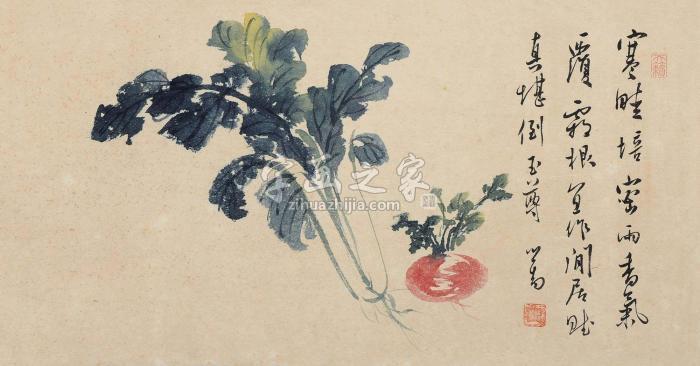 寒畦培宿雨香氣
覆霜根宜作閒居賦
真堪倒玉尊 心畬
字画之家
zihuazhijia.com